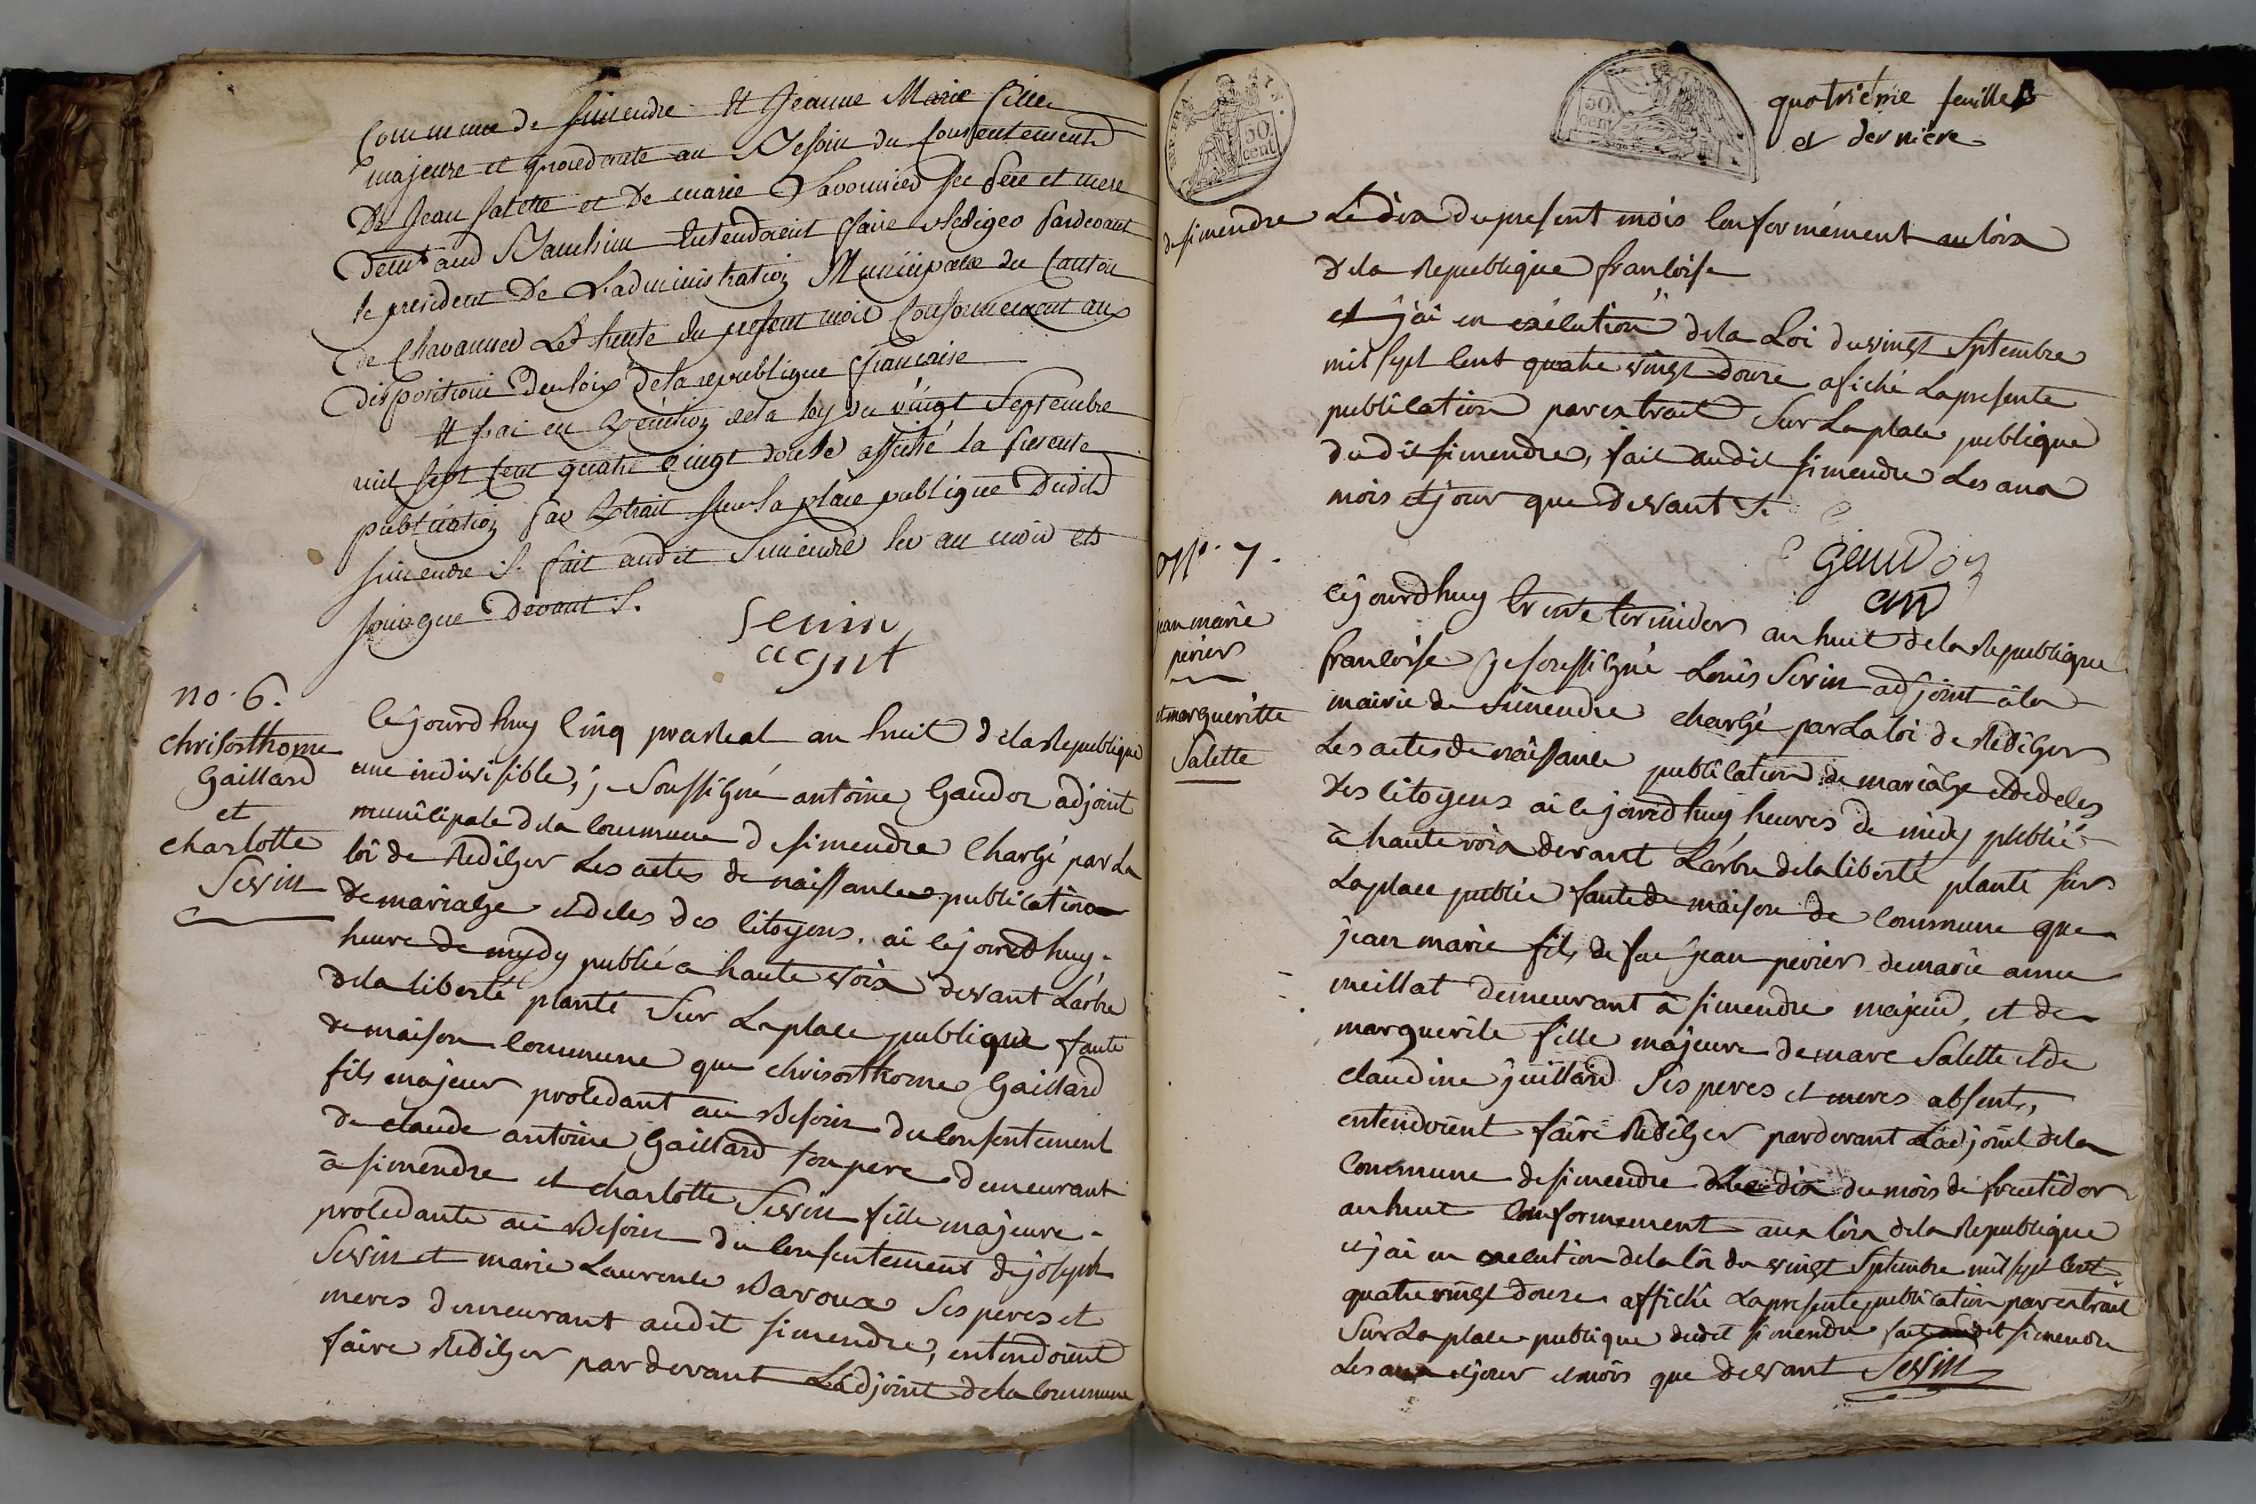 Commune de simendre Et Jeanne Marie fille
majeure et procedante au Besoin du Consentement
De Jean salette et De marie Savourier ses pere et mere
demt aud entendoient faire Rediger pardevant
le president De L'administration Municipale du Canton
de Chavannes Le trente du present mois Conformement aux
dispositions des loix de la republique française
Et j'ai en Execution de la loy du vingt Septembre
mil sept Cent quatre vingt douze affiché la presente
publication par Extrait sur la place publique Dudit
simendre ./. fait audit Simendre les an mois et
jour que Devant ./.
Sevin
agent
no. 6.
chrisosthome
Gaillard
et
charlotte
Sevin
Cejourdhuy Cinq prareal an huit de la Republique
une indivisible, je Soussigné antoine Gaudoz adjoint
municipale de la Commune de simendre Chargé par La
loi de Rediger Les actes de naissances publication
de mariage et deces des Citoyens. ai cejourdhuy
heure de mydy publié a haute voix devant L'arbre
de la liberté planté Sur La place publique faute
de maison Commune que chrisosthome Gaillard
fils majeur procedant au Besoin du Consentement
de claude antoine Gaillard son pere demeurant
à simendre et charlotte Sevin fille majeure
procedante au Besoin du Consentement de joseph
Sevin et marie Laurence Baroux Ses peres et
meres demeurant audit simendre, entendoient
faire Rediger pardevant L'adjoint de la Commune
50
cent
50
cent
quatrième feuille
et dernière
de simendre Le dix du present mois Conformément au loix
de la Republique françoise
et j'ai en exécution de la Loi du vingt Septembre
mil sept Cent quatre vingt douze afiché La presente
publication par extrait Sur La place publique
dudit simendre, fait audit simendre Les ans
mois et jour que devant ./.
Gaudoz
No. 7.
jean marie
perier
et marguerite
Salette
Cejourdhuy trente termidor an huit de la Republique
françoise je soussigné Louis Sevin adjoint à la
mairie de Simendre chargé par La loi de Rediger
Les actes de naissance publication de mariage et de deces
des Citoyens ai cejourdhuy heures de midy publié
à haute voix devant L'arbre de la liberté planté sur
La place publie faute de maison de Commune que
jean marie fils de feu jean perier de marie anne
meillat demeurant à simendre majeur, et de
marguerite fille majeure de marc Salette et de
claudine juillard Ses peres et meres absents,
entendoient faire Rediger pardevant L'adjoint de la
Commune de simendre Le dix du mois de fructidor
an huit Conformement aux loix de la Republique
et j'ai en execution de la loi du vingt Septembre mil sept Cent
quatre vingt douze affiché La presente publication par extrait
Sur La place publique dudit simendre fait audit simendre
Les ans et jour et mois que devant Sevin